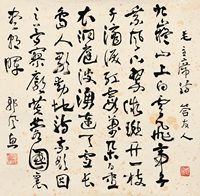 毛主席詩 答友人
九嶷山上白雲飛帝子
乘風下翠微斑竹一枝
千滴淚紅霞萬朵百重
衣洞庭波涌連天雪長
島人歌動地詩我欲因
之夢寥廓芙蓉國裏
盡朝暉 郭風惠